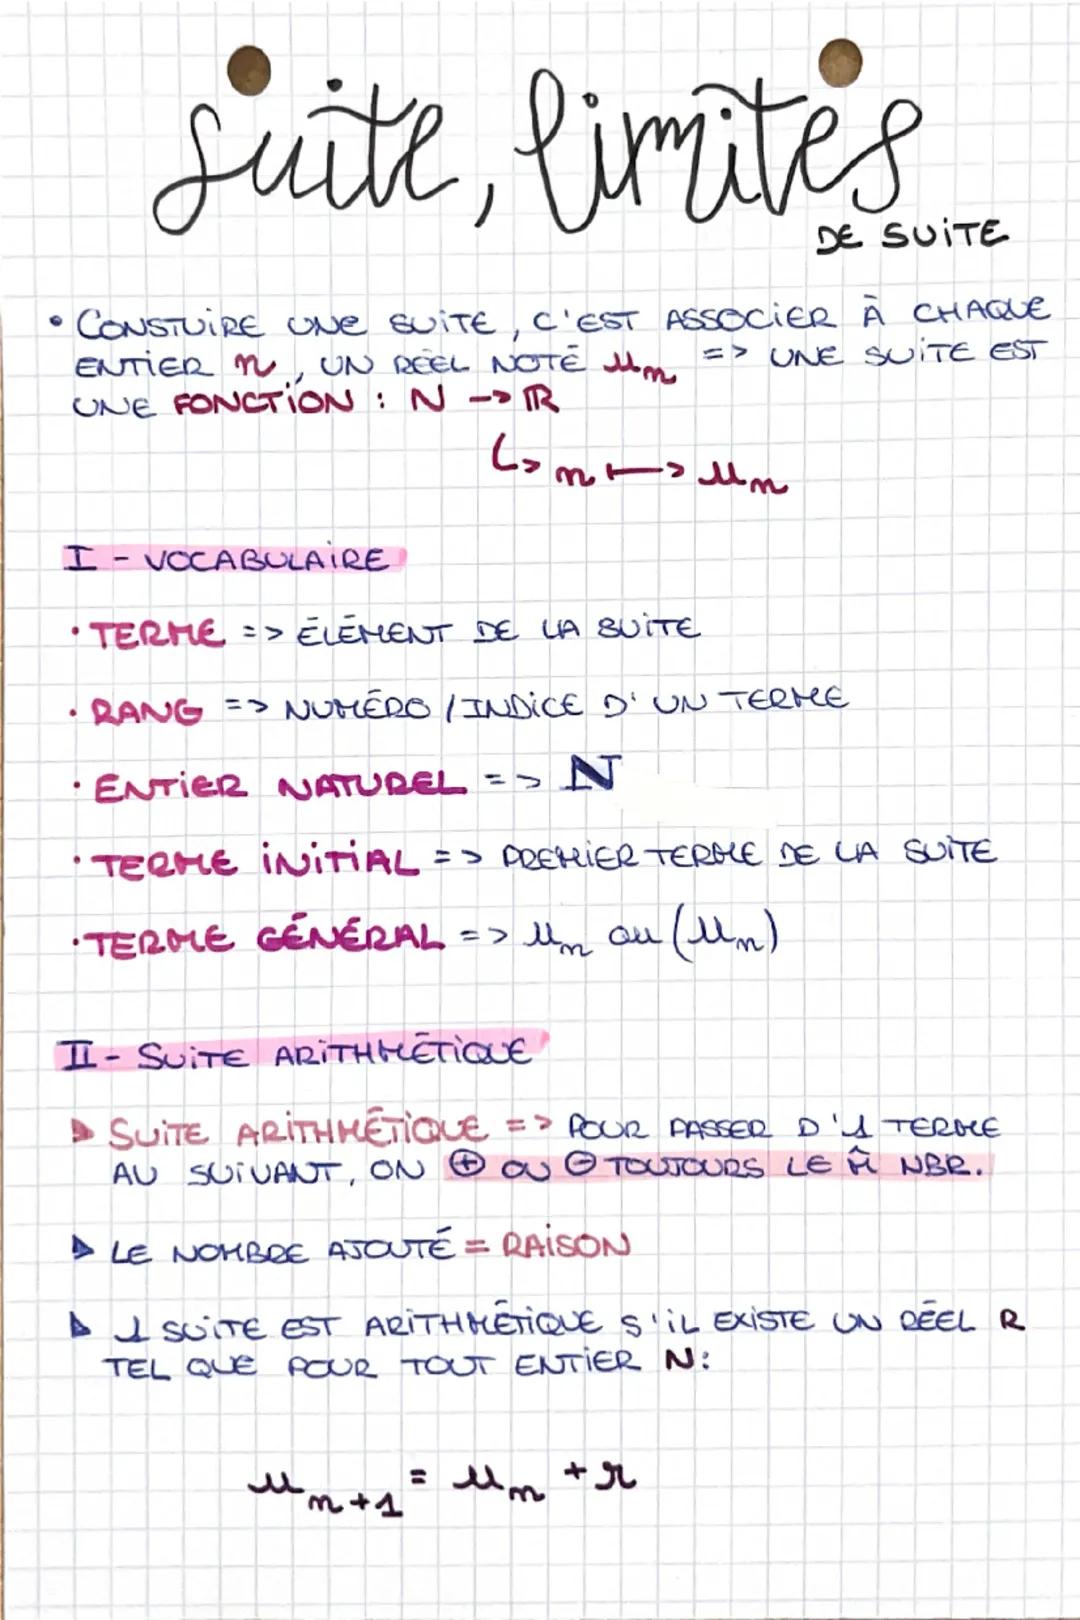 suite, limites
DE SUITE
• CONSTUIRE UNE SUITE, C'EST ASSOCIER À CHAQUE
ENTIER n, UN RÉEL NOTÉ un => UNE SUITE EST
UNE FONCTION : N -> ℝ
↳ n ↦ un
I - VOCABULAIRE
• TERME => ÉLÉMENT DE LA SUITE
• RANG => NUMÉRO / INDICE D'UN TERME
• ENTIER NATUREL => ℕ
• TERME INITIAL => PREMIER TERME DE LA SUITE
• TERME GÉNÉRAL => un ou (un)
II - SUITE ARITHMÉTIQUE
▷ SUITE ARITHMÉTIQUE => POUR PASSER D'1 TERME
AU SUIVANT, ON ⊕ OU ⊖ TOUJOURS LE M̂ NBR.
▷ LE NOMBRE AJOUTÉ = RAISON
▷ 1 SUITE EST ARITHMÉTIQUE S'IL EXISTE UN RÉEL R
TEL QUE POUR TOUT ENTIER N:
un+1 = un + r